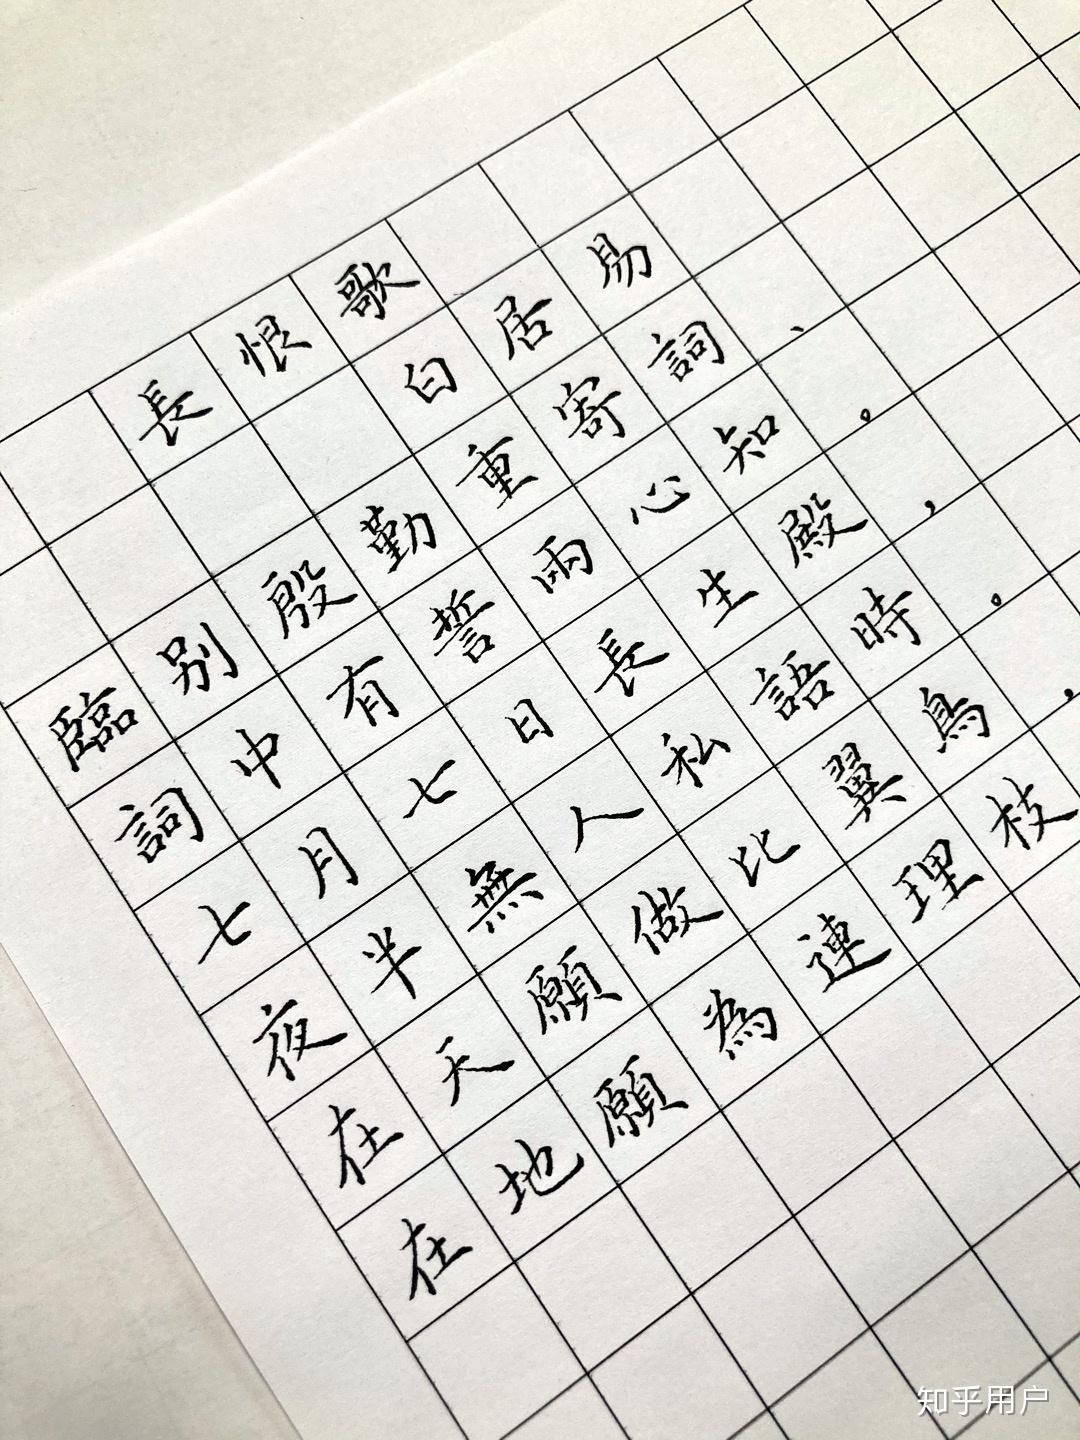 長恨歌
白居易
臨別殷勤重寄詞、
詞中有誓兩心知。
七月七日長生殿，
夜半無人私語時。
在天願做比翼鳥，
在地願為連理枝
知乎用户